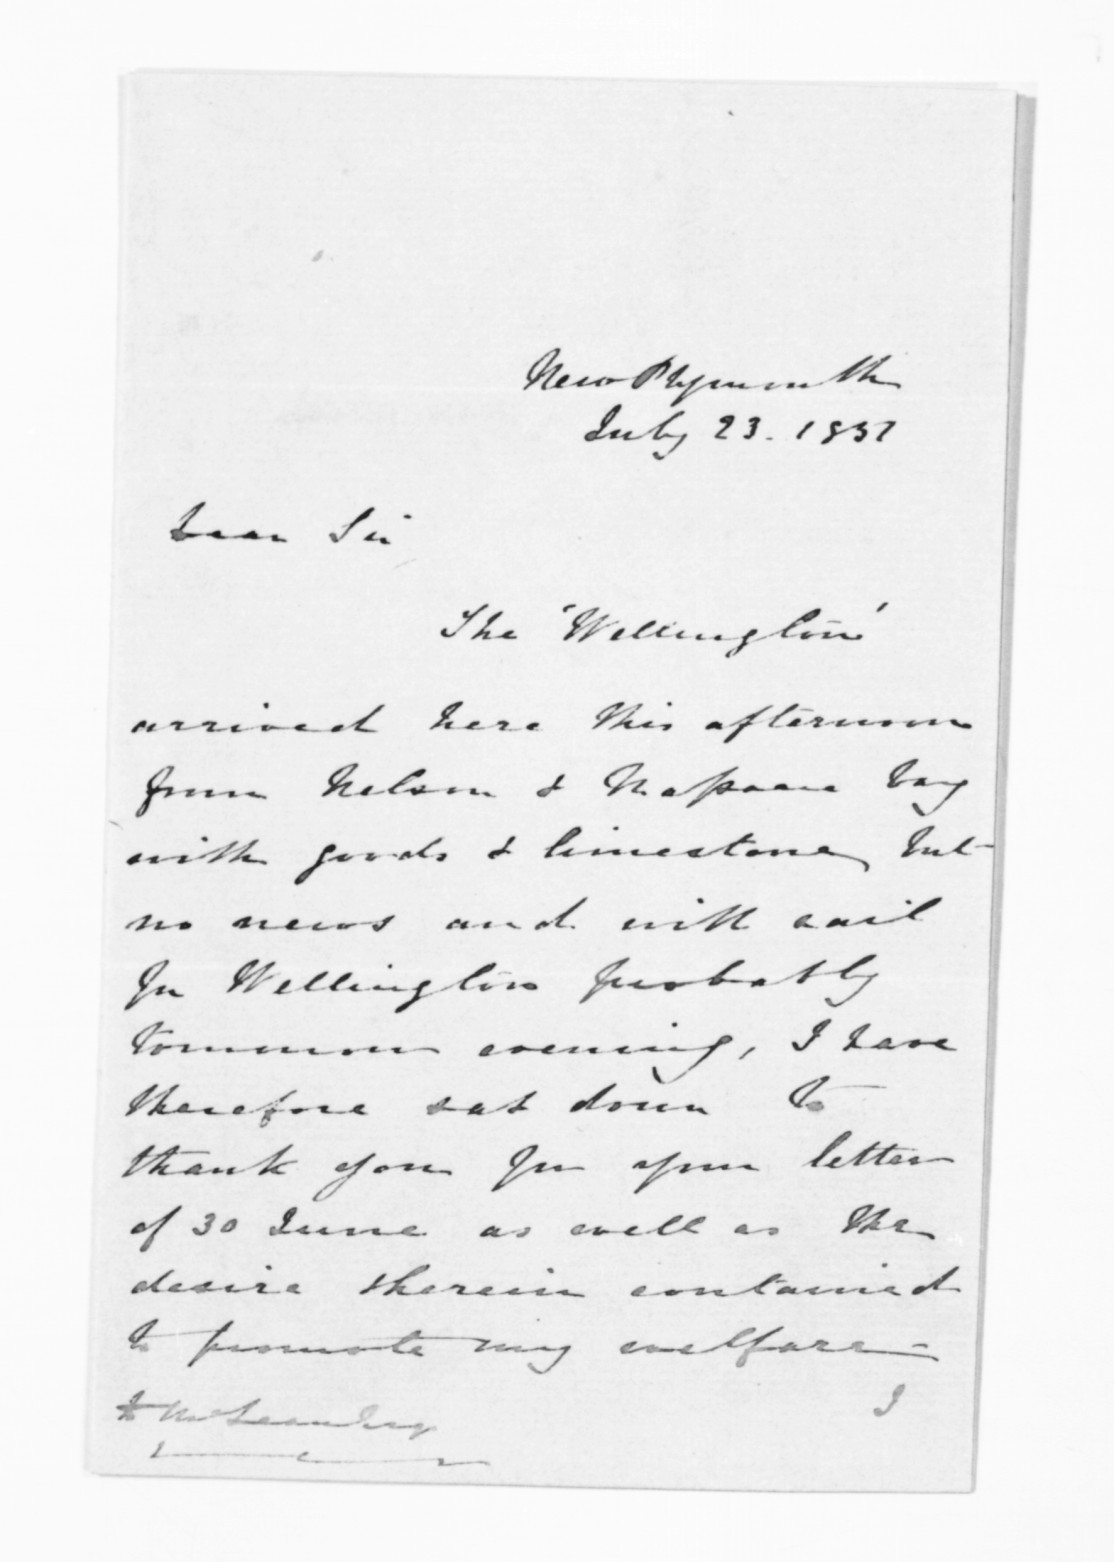 New Plymouth
July 23. 1851
Dear Sir
The 'Wellington'
arrived here this afternoon
from Nelson & Massacre bay
with goods & limestone, but
no news and will sail
for Wellington probably
tomorrow evening, I have
therefore sat down to
thank you for your letter
of 30 June as well as the
desire therein contained
to promote my welfare -
I
McLean Esq